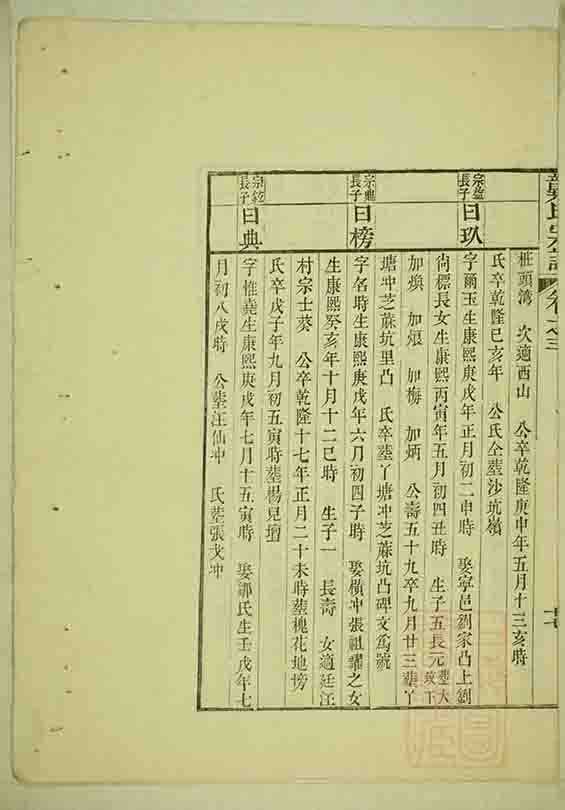 氏宗譜 卷之三
桩頭湾 次適西山 公卒乾隆庚申年五月十三亥時
氏卒乾隆己亥年 公氏仝塟沙坑嶺
宗
長子
曰玖
字爾玉生康熙庚戌年正月初二申時 娶寧邑劉家凸上劉
尙標長女生康熙丙寅年五月初四丑時 生子五長元塟大坟下
加煥 加烺 加梅 加炳 公壽五十九卒九月廿三塟丫
塘冲芝蔴坑里凸 氏卒塟丫塘冲芝蔴坑凸碑文爲號
宗
長子
曰榜
字名時生康熙庚戌年六月初四子時 娶橫冲張祖耀之女
生康熙癸亥年十月十二巳時 生子一 長壽 女適廷汪
村宗士葵 公卒乾隆十七年正月二十未時塟槐花地塝
氏卒戊子年九月初五寅時塟楊見壇
宗
長子
曰典
字惟堯生康熙庚戌年七月十五寅時 娶鄒氏生壬戌年七
月初八戌時 公塟汪仙冲 氏塟張戈冲